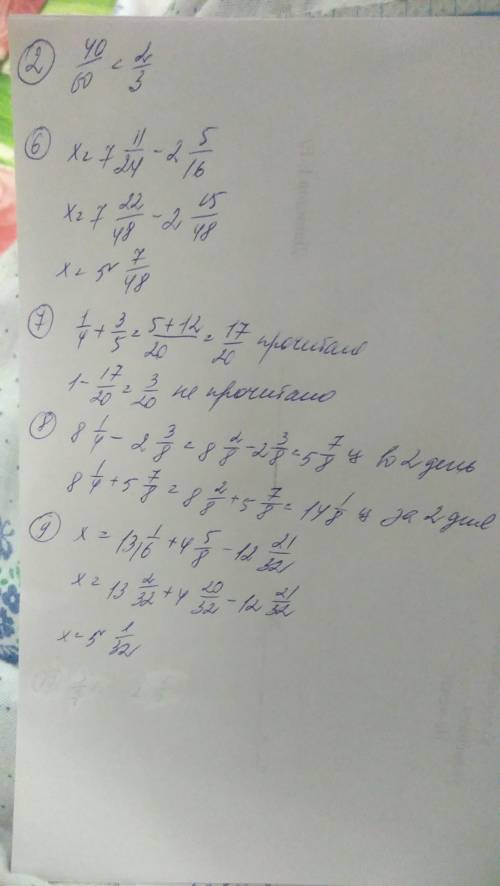 2 40/60 = 2/3
6 x = 7 11/24 - 2 5/16
x = 7 22/48 - 2 15/48
x = 5 7/48
7 1/4 + 3/5 = 5+12/20 = 17/20 прочитано
1 - 17/20 = 3/20 не прочитано
8 8 1/4 - 2 3/8 = 8 2/8 - 2 3/8 = 5 7/8 ц во 2 день
8 1/4 + 5 7/8 = 8 2/8 + 5 7/8 = 14 1/8 ц за 2 дня
9 x = 13 1/16 + 4 5/8 - 12 21/32
x = 13 2/32 + 4 20/32 - 12 21/32
x = 5 1/32